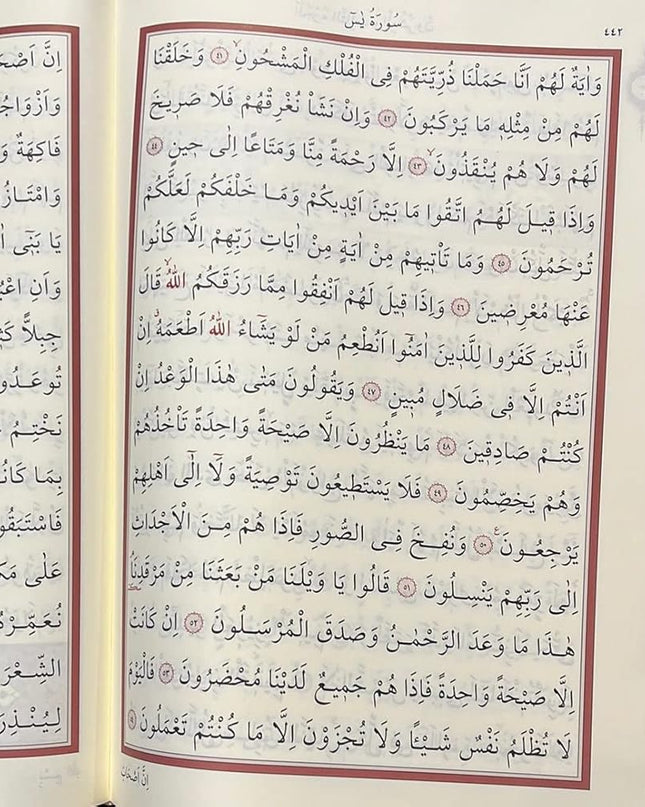 ٤٤٢
سُورَةُ يٰسٓ
وَاٰيَةٌ لَهُمْ اَنَّا حَمَلْنَا ذُرِّيَّتَهُمْ فِى الْفُلْكِ الْمَشْحُونِ ﴿٤١﴾ وَخَلَقْنَا
لَهُمْ مِنْ مِثْلِهٖ مَا يَرْكَبُونَ ﴿٤٢﴾ وَاِنْ نَشَاْ نُغْرِقْهُمْ فَلَا صَرٖيخَ
لَهُمْ وَلَا هُمْ يُنْقَذُونَ ﴿٤٣﴾ اِلَّا رَحْمَةً مِنَّا وَمَتَاعًا اِلٰى حٖينٍ ﴿٤٤﴾
وَاِذَا قٖيلَ لَهُمُ اتَّقُوا مَا بَيْنَ اَيْدٖيكُمْ وَمَا خَلْفَكُمْ لَعَلَّكُمْ
تُرْحَمُونَ ﴿٤٥﴾ وَمَا تَاْتٖيهِمْ مِنْ اٰيَةٍ مِنْ اٰيَاتِ رَبِّهِمْ اِلَّا كَانُوا
عَنْهَا مُعْرِضٖينَ ﴿٤٦﴾ وَاِذَا قٖيلَ لَهُمْ اَنْفِقُوا مِمَّا رَزَقَكُمُ اللّٰهُ قَالَ
الَّذٖينَ كَفَرُوا لِلَّذٖينَ اٰمَنُٓوا اَنُطْعِمُ مَنْ لَوْ يَشَٓاءُ اللّٰهُ اَطْعَمَهُ اِنْ
اَنْتُمْ اِلَّا فٖى ضَلَالٍ مُبٖينٍ ﴿٤٧﴾ وَيَقُولُونَ مَتٰى هٰذَا الْوَعْدُ اِنْ
كُنْتُمْ صَادِقٖينَ ﴿٤٨﴾ مَا يَنْظُرُونَ اِلَّا صَيْحَةً وَاحِدَةً تَاْخُذُهُمْ
وَهُمْ يَخِصِّمُونَ ﴿٤٩﴾ فَلَا يَسْتَطٖيعُونَ تَوْصِيَةً وَلَٓا اِلٰٓى اَهْلِهِمْ
يَرْجِعُونَ ﴿٥٠﴾ وَنُفِخَ فِى الصُّورِ فَاِذَا هُمْ مِنَ الْاَجْدَاثِ
اِلٰى رَبِّهِمْ يَنْسِلُونَ ﴿٥١﴾ قَالُوا يَا وَيْلَنَا مَنْ بَعَثَنَا مِنْ مَرْقَدِنَا
هٰذَا مَا وَعَدَ الرَّحْمٰنُ وَصَدَقَ الْمُرْسَلُونَ ﴿٥٢﴾ اِنْ كَانَتْ
اِلَّا صَيْحَةً وَاحِدَةً فَاِذَا هُمْ جَمٖيعٌ لَدَيْنَا مُحْضَرُونَ ﴿٥٣﴾ فَالْيَوْمَ
لَا تُظْلَمُ نَفْسٌ شَيْـًٔا وَلَا تُجْزَوْنَ اِلَّا مَا كُنْتُمْ تَعْمَلُونَ
اِنَّ اَصْحَابَ
اِنَّ
فَاكِهَةٌ
وَامْتَازُ
يَا بَنٖٓى
وَاَنِ
جِبِلًّا
تُوعَدُو
نَخْتِمُ
بِمَا كَانُ
فَاسْتَبَقُو
عَلٰى
نُعَمِّرْهُ
الشِّعْرَ
لِيُنْذِرَ